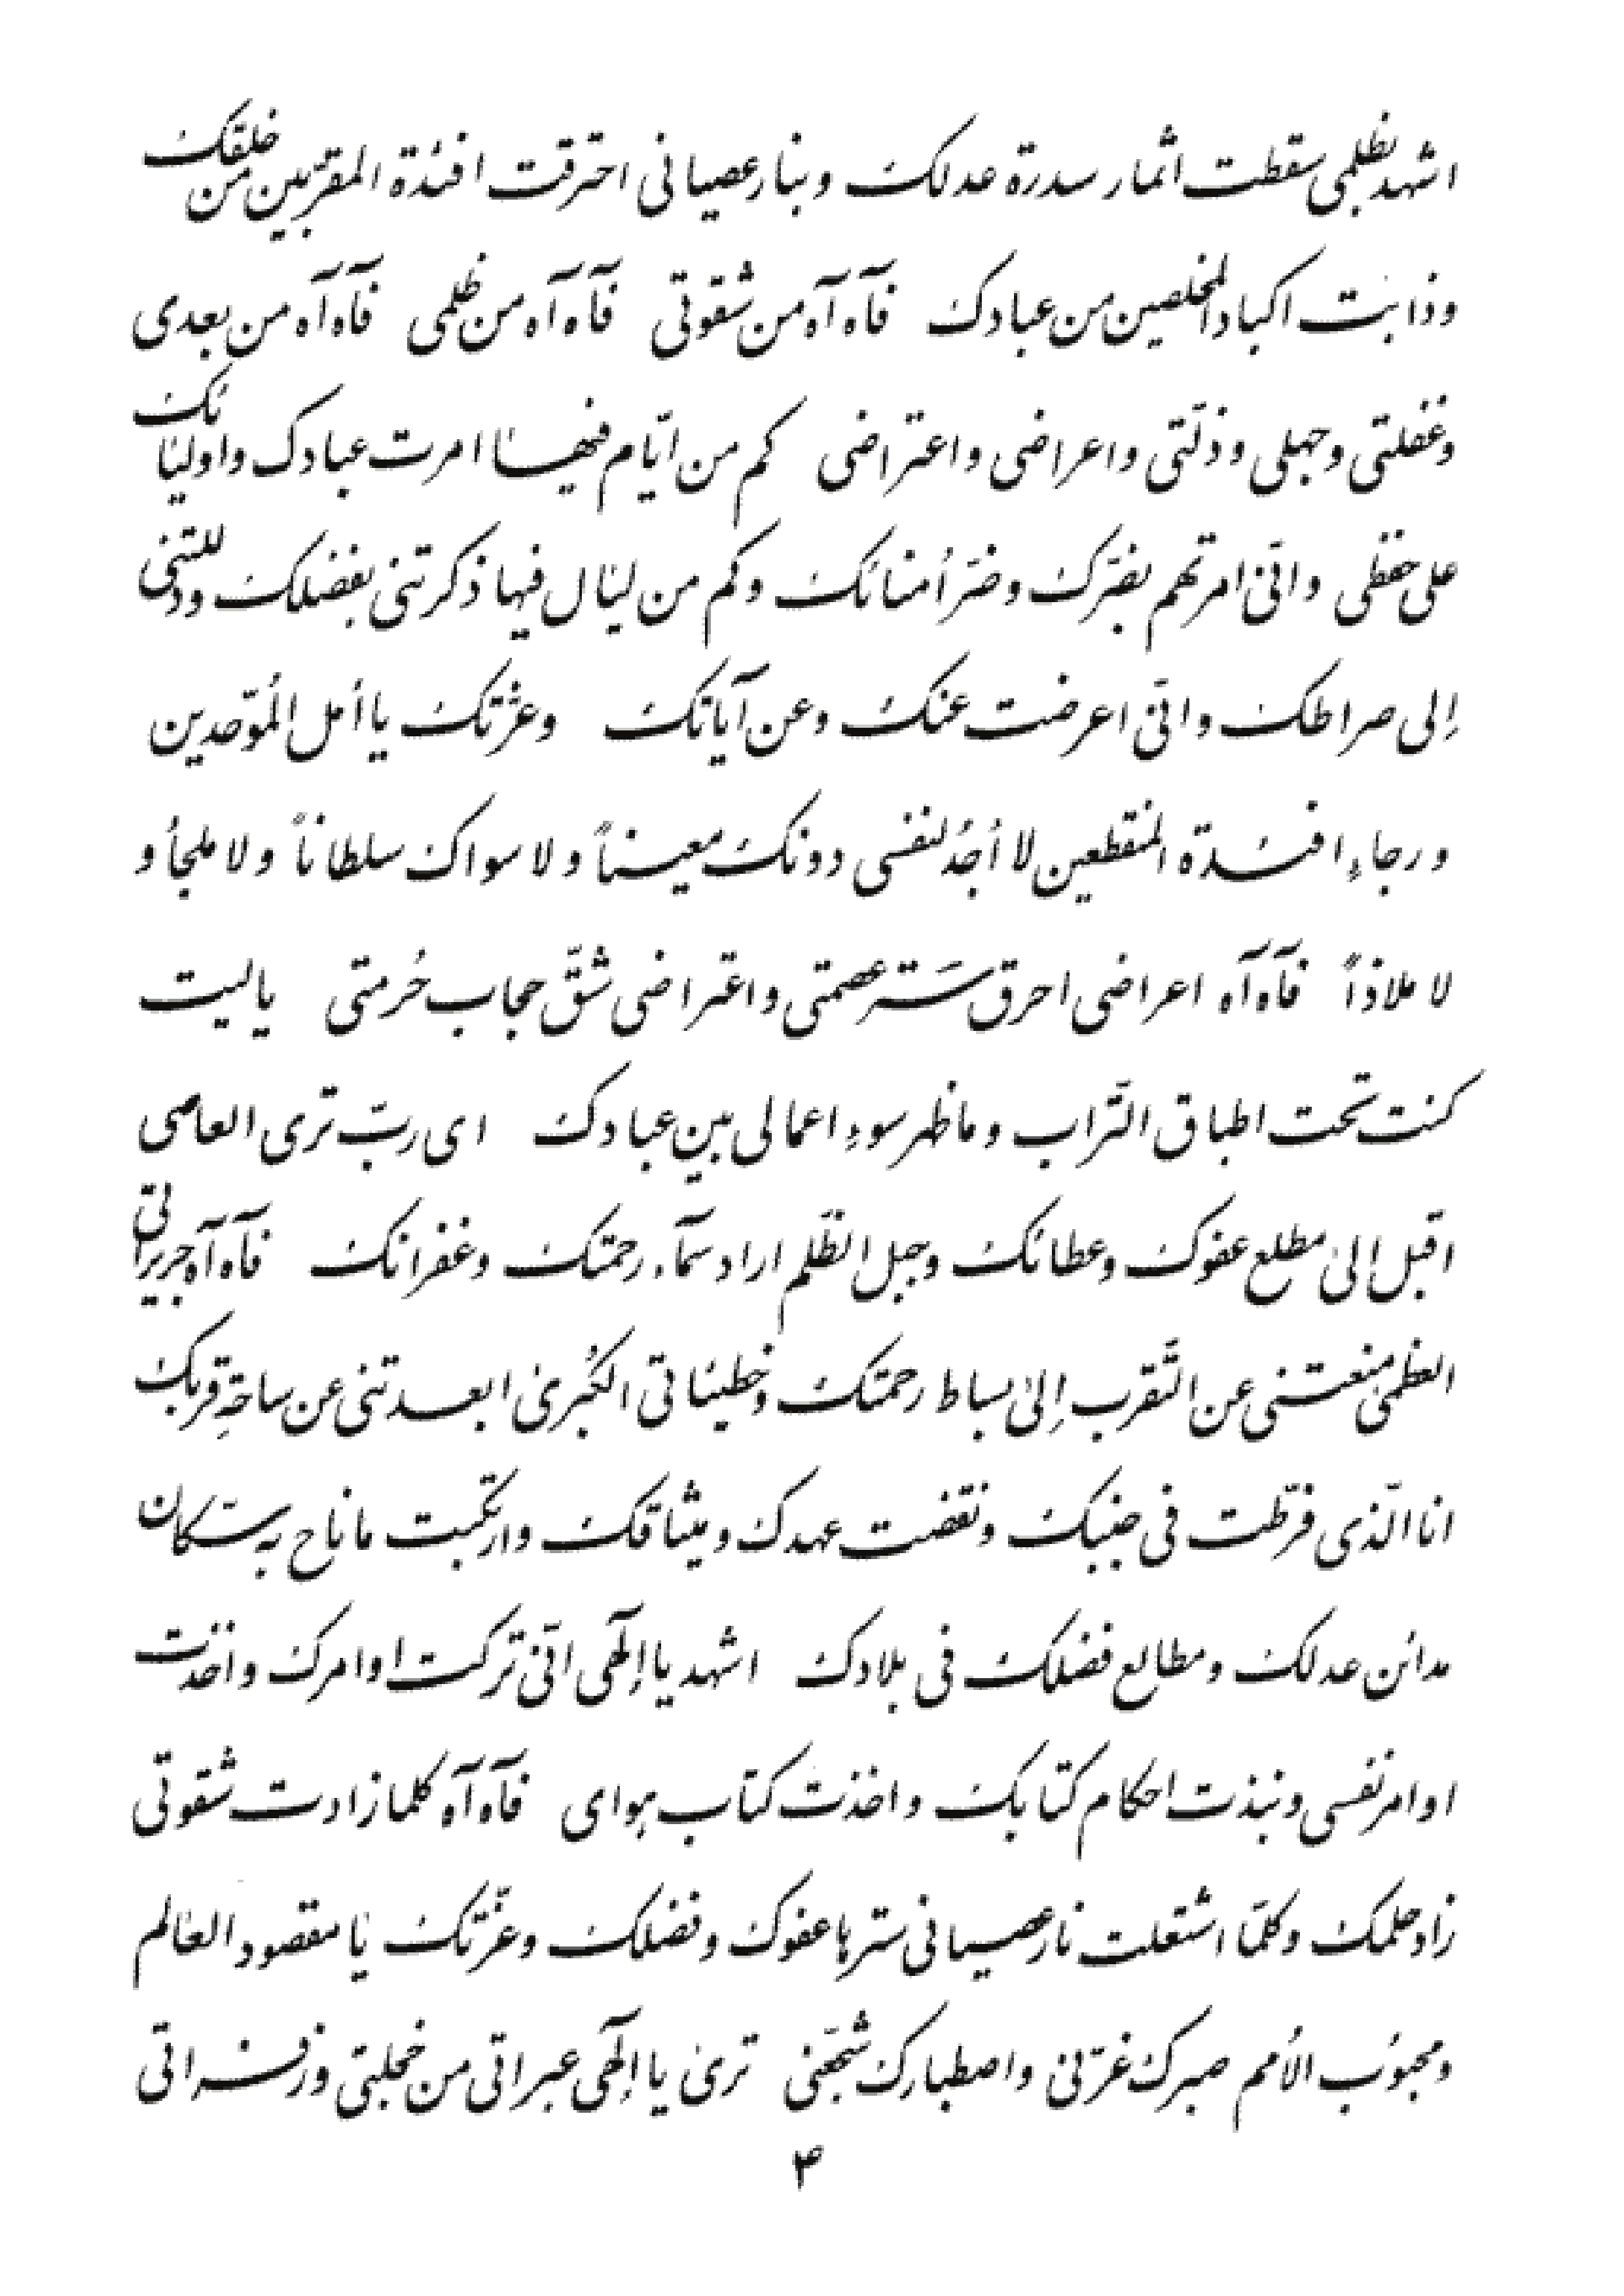 اشهد بظلمی سقطت اثمار سدرة عدلک و بنار عصیانی احترقت افئدة المقرّبین من خلقک
و ذابت اکباد المخلصین من عبادک فآه آه من شقوتی فآه آه من ظلمی فآه آه من بعدی
و غفلتی و جهلی و ذلّتی و اعراضی و اعتراضی کم من ایّام فیها امرت عبادک و اولیائک
علی حفظی و انّی امرتهم بضرّک و ضرّ اُمنائک و کم من لیال فیها ذکرتنی بفضلک و دللتنی
إلی صراطک و انّی اعرضت عنک و عن آیاتک و عزّتک یا أمل المُوَحّدین
و رجاءِ افئدة المنقطعین لا أجُد لنفسی دونک معیناً و لا سواک سلطاناً و لا ملجأ و
لا ملاذاً فآه آه اعراضی احرق ستر عصمتی و اعتراضی شقّ حجاب حُرمتی یا لیت
کنت تحت اطباق التّراب و ما ظهر سوءِ اعمالی بین عبادک ای ربّ تری العاصی
اقبل إلیٰ مطلع عفوک و عطائک و جبل الظّلم اراد سمآء رحمتک و غفرانک فآه آه جریراتی
العظمیٰ منعتنی عن التّقرب إلیٰ بساط رحمتک و خطیئاتی الکُبریٰ ابعدتنی عن ساحةِ قربک
انا الّذی فرّطت فی جنبک و نقضت عهدک و میثاقک و ارتکبت ما ناح به سکّان
مدائن عدلک و مطالع فضلک فی بلادک اشهد یا إلٓهی انّی ترکت اوامرک و اخذت
اوامر نفسی و نبذت احکام کتابک و اخذت کتاب هوای فآه آه کلما زادت شقوتی
زاد حلمک و کلّما اشتعلت نار عصیانی سترها عفوک و فضلک و عزّتک یا مقصود العالم
و محبوُب الاُمم صبرک غرّنی و اصطبارک شجّعنی تریٰ یا إلٓهی عبراتی من خجلتی و زفراتی
۴